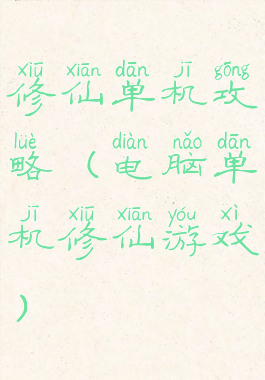 xiū xiān dān jī gōng
修仙单机攻
lüè diàn nǎo dān
略（电脑单
jī xiū xiān yóu xì
机修仙游戏
）